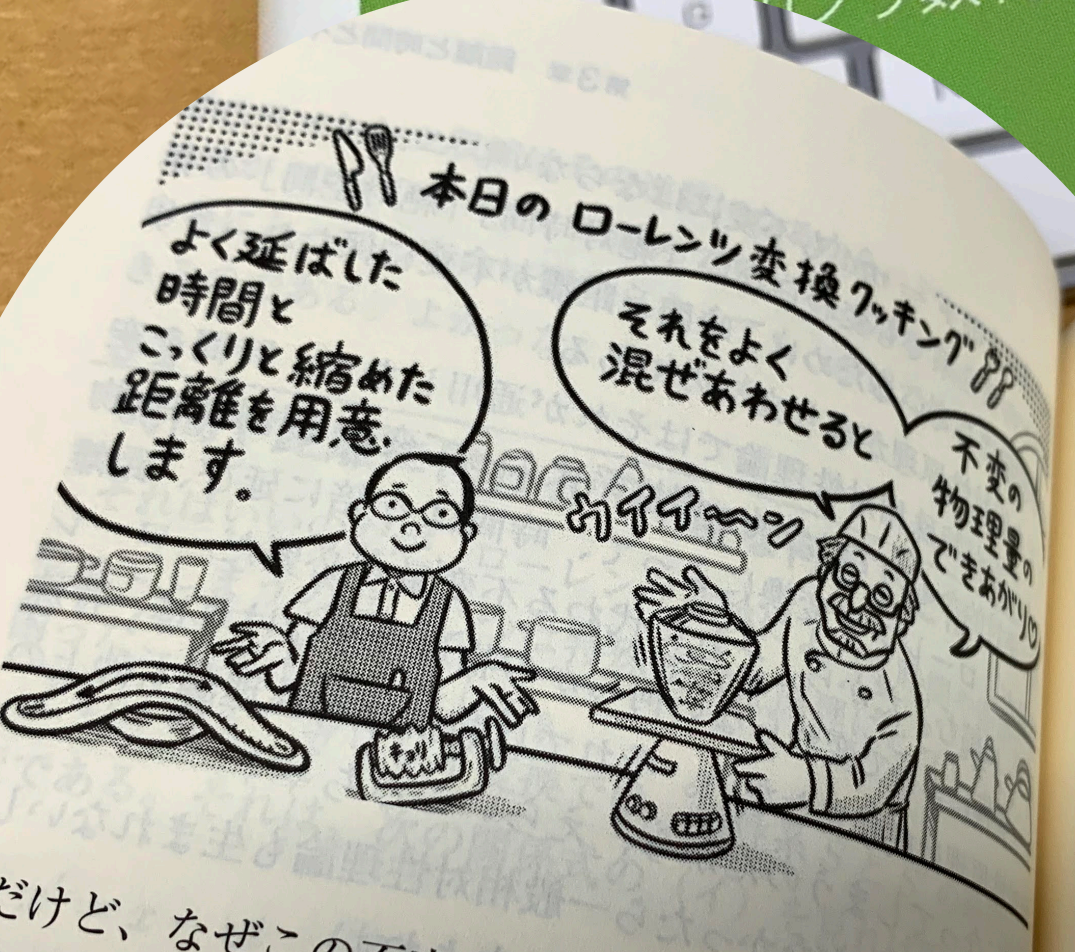 本日の ローレンツ変換クッキング
よく延ばした
時間と
こっくりと縮めた
距離を用意
します。
それをよく
混ぜあわせると
ウイイーン
不変の
物理量の
できあがり♡
だけど、なぜこの